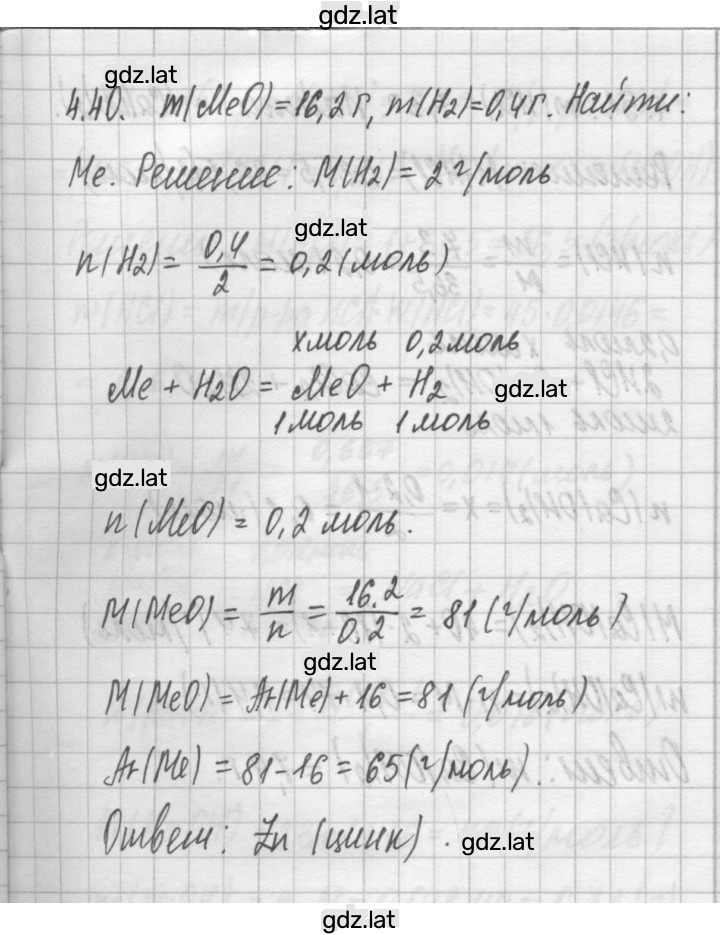 gdz.lat
gdz.lat
4.40. m(MeO)=16,2 г, m(H2)=0,4 г. Найти:
Me. Решение: M(H2)= 2 г/моль
gdz.lat
n(H2)= 0,4/2 = 0,2 (моль)
x моль 0,2 моль
Me + H2O = MeO + H2 gdz.lat
1 моль 1 моль
gdz.lat
n(MeO) = 0,2 моль.
M(MeO) = m/n = 16.2/0,2 = 81 (г/моль)
gdz.lat
M(MeO) = Ar(Me)+16 =81 (г/моль)
Ar(Me) =81-16 = 65 (г/моль).
Ответ: Zn (цинк). gdz.lat
gdz.lat